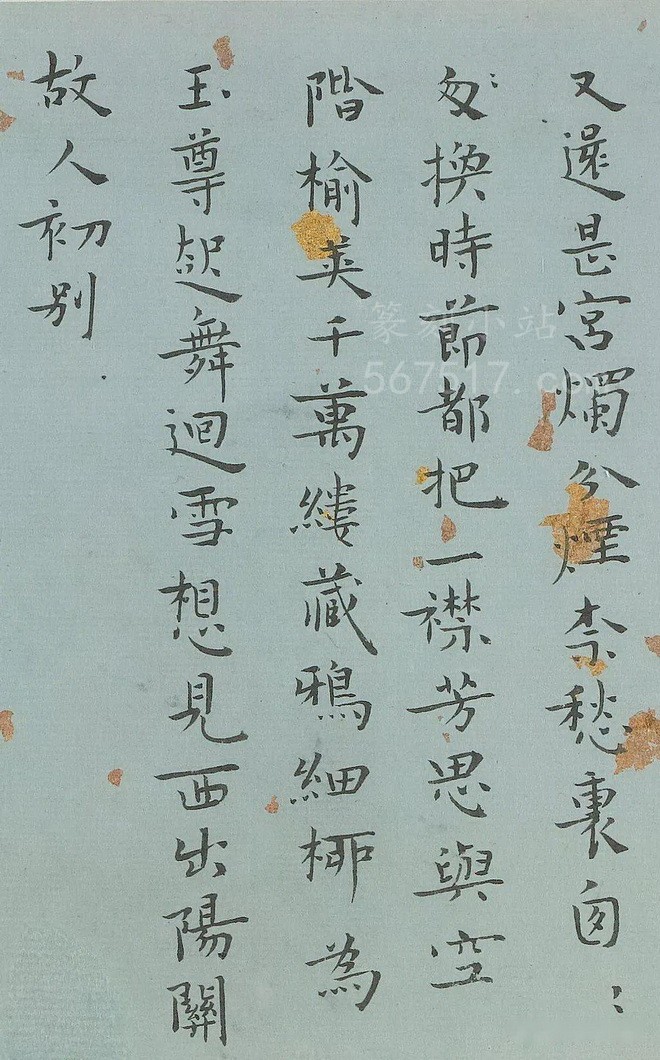 又還是宮燭分煙柰愁裏囪〻
匆〻換時節都把一襟芳思與空
階榆莢千萬縷藏鴉細柳為
玉尊起舞迴雪想見西出陽關
故人初別
篆刻小站
567517.com